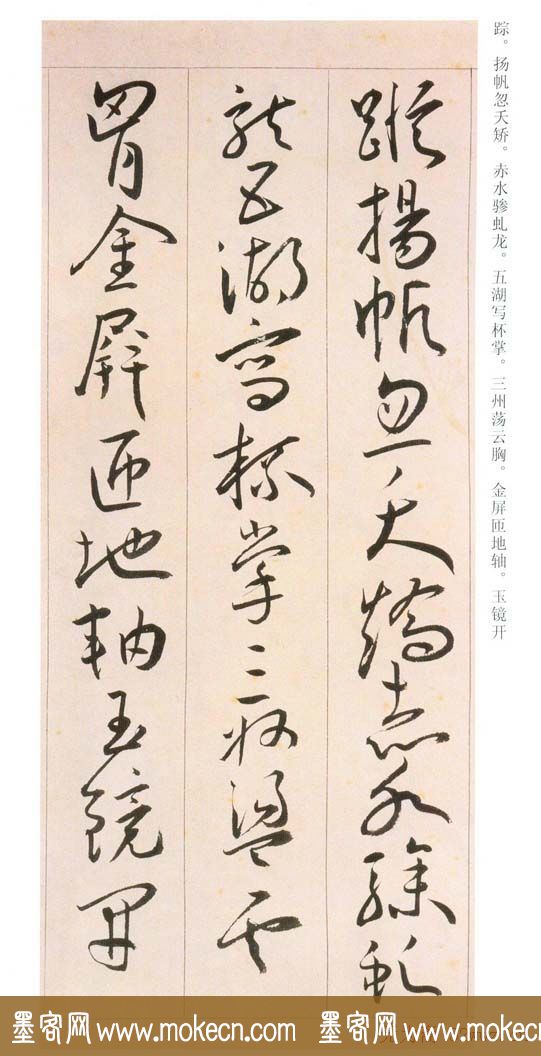 踪。扬帆忽夭矫。赤水骖虬龙。五湖写杯掌。三州荡云胸。金屏匝地轴。玉镜开
蹤揚帆忽夭矯赤水驂虬
龍五湖寫杯掌三州盪雲
胷金屏匝地軸玉鏡開
墨客网 www.mokecn.com 墨客网 www.mokecn.com